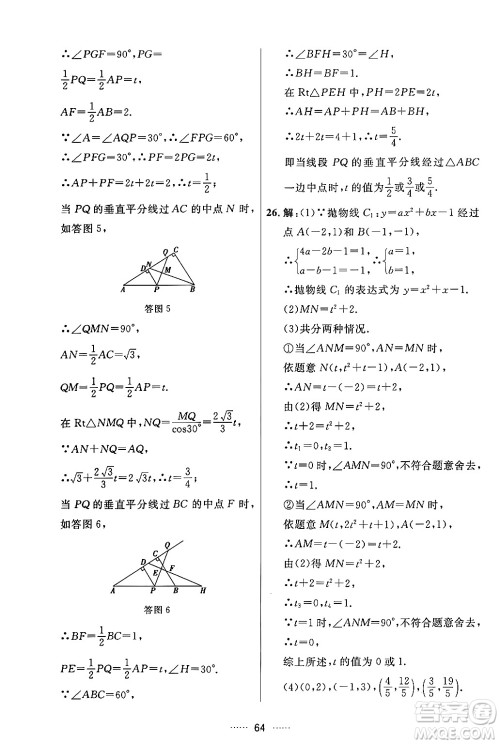 ∴∠PGF=90°,PG=
1/2PQ=1/2AP=t,
AF=1/2AB=2.
∵∠A=∠AQP=30°,∴∠FPG=60°.
∴∠PFG=30°,∴PF=2PG=2t.
∴AP+PF=2t+2t=2,∴t=1/2.
当 PQ的垂直平分线过 AC的中点 N 时,
如答图 5,
Q C
D N M
A P B
答图 5
∴∠QMN=90°,
AN=1/2AC=√3,
QM=1/2PQ=1/2AP=t.
在 Rt△NMQ 中,NQ=MQ/cos30°=2√3/3t.
∵AN+NQ=AQ,
∴√3+2√3/3t=2√3t.∴t=3/4.
当 PQ 的垂直平分线过 BC 的中点 F 时,
如答图 6,
Q
C
D E F
A P B H
答图 6
∴BF=1/2BC=1,
PE=1/2PQ=t,∠H=30°.
∵∠ABC=60°,
∴∠BFH=30°=∠H,
∴BH=BF=1.
在 Rt△PEH 中,PH=2PE=2t.
∴AH=AP+PH=AB+BH,
∴2t+2t=4+1,∴t=5/4.
即当线段 PQ的垂直平分线经过△ABC
一边中点时,t的值为1/2或3/4或5/4.
26.解:(1)∵抛物线 C₁:y=ax²+bx-1经过
点 A(-2,1)和 B(-1,-1),
∴{4a-2b-1=1, a-b-1=-1.∴{a=1, b=1.
∴抛物线 C₁ 的表达式为 y=x²+x-1.
(2)MN=t²+2.
(3)共分两种情况.
①当∠ANM=90°,AN=MN 时,
依题意 N(t,t²+t-1),A(-2,1),
∴AN=t-(-2)=t+2.
由(2)得 MN=t²+2,
∴t+2=t²+2.
∴t₁=0,t₂=1.
∵t=0时,∠AMN=90°,不符合题意舍去,
∴t=1.
②当∠AMN=90°,AM=MN 时,
依题意,
∴AM=t-(-2)=t+2.
由(2)得 MN=t²+2,
∴t+2=t²+2.
∴t₃=0,t₄=1.
∵t=1时,∠ANM=90°,不符合题意舍去,
∴t=0.
综上所述,t的值为0或1.
(4)(0,2),(-1,3),(4/5,6/5),(12/5,19/5).
64